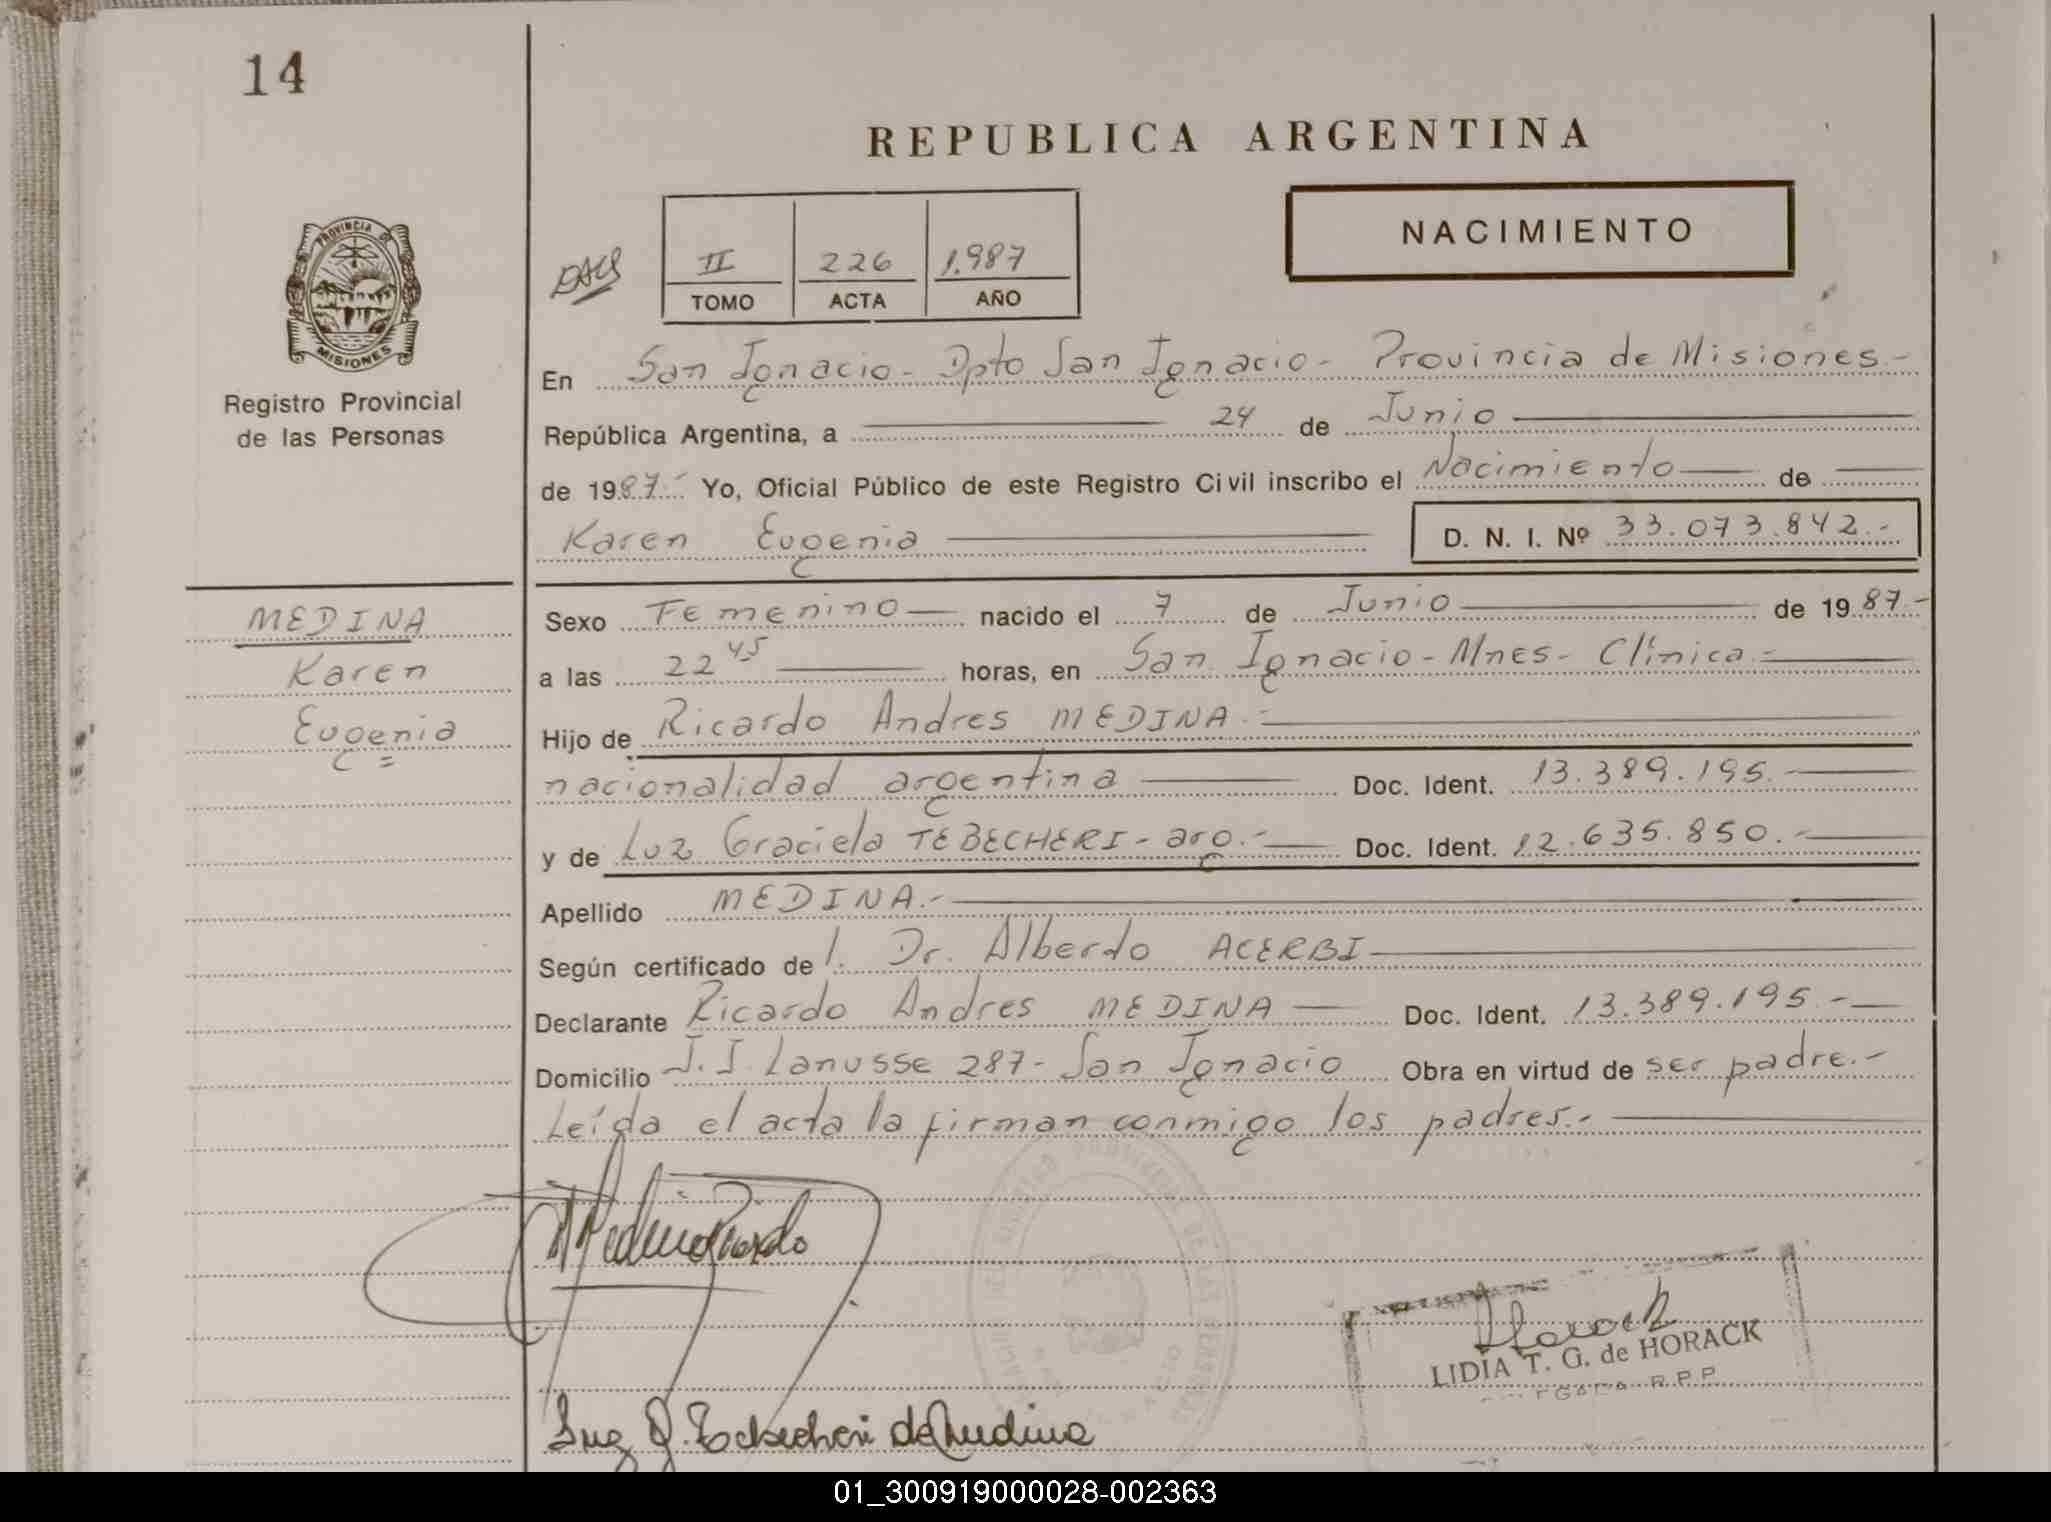 14
REPUBLICA ARGENTINA
NACIMIENTO
II 226 1.987
TOMO ACTA AÑO
PROVINCIA DE
MISIONES
Registro Provincial
de las Personas
En San Ignacio - Dpto San Ignacio - Provincia de Misiones.-
República Argentina, a 24 de Junio
de 1987 Yo, Oficial Público de este Registro Civil inscribo el Nacimiento de
Karen Eugenia D. N. I. Nº 33.073.842.-
MEDINA
Karen
Eugenia
Sexo Femenino nacido el 7 de Junio de 1987.-
a las 22 45 horas, en San Ignacio - Mnes - Clínica.-
Hijo de Ricardo Andres MEDINA.-
nacionalidad argentina Doc. Ident. 13.389.195.-
y de Luz Graciela TEBECHERI - arg.- Doc. Ident. 12.635.850.-
Apellido MEDINA.-
Según certificado de l. Dr. Alberto ACERBI
Declarante Ricardo Andres MEDINA Doc. Ident. 13.389.195.-
Domicilio J.J. Lanusse 287 - San Ignacio Obra en virtud de ser padre.-
Leída el acta la firman conmigo los padres.-
Medina Ricardo
Horack
LIDIA T. G. de HORACK
R.P.P.
Luz G. Tebecheri de Medina
01_300919000028-002363